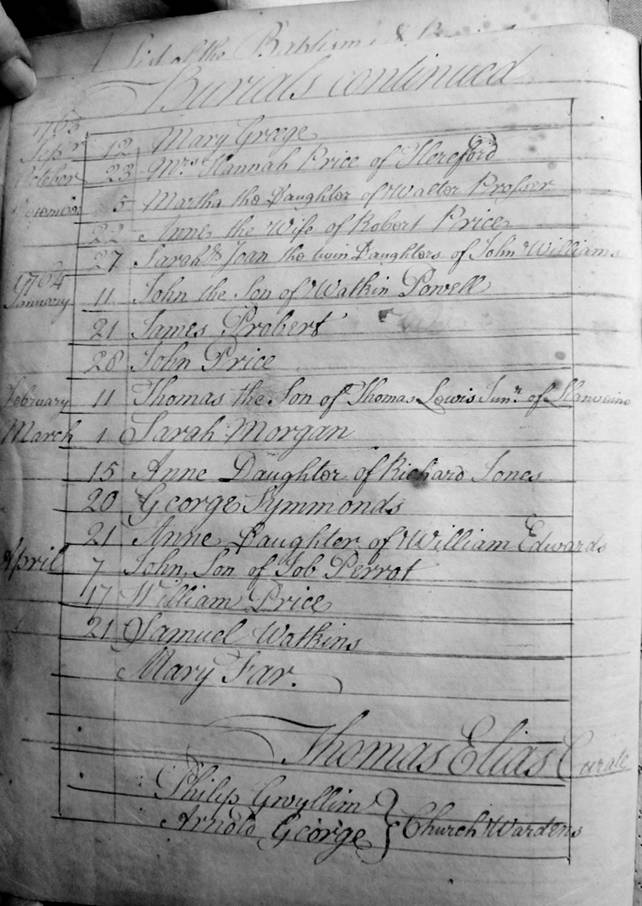 List of the Baptisms & Burials
Burials continued
1763
Sepr 12 Mary Greege
October 23 Mrs. Hannah Price of Hereford
December 5 Martha the Daughter of Walter Prosser
22 Anne the Wife of Robert Price
27 Sarah & Joan the twin Daughters of John Williams
1764
January 11 John the Son of Watkin Powell
21 James Probert
28 John Price
February 11 Thomas the Son of Thomas Lewis Junr. of
March 1 Sarah Morgan
15 Anne Daughter of Richard Jones
20 George Symmonds
21 Anne Daughter of William Edwards
April 7 John, Son of Job Perrot
17 William Price
21 Samuel Watkins
Mary Far.
Thomas Elias Curate
Philip Gwyllim
Arnold George } Church Wardens